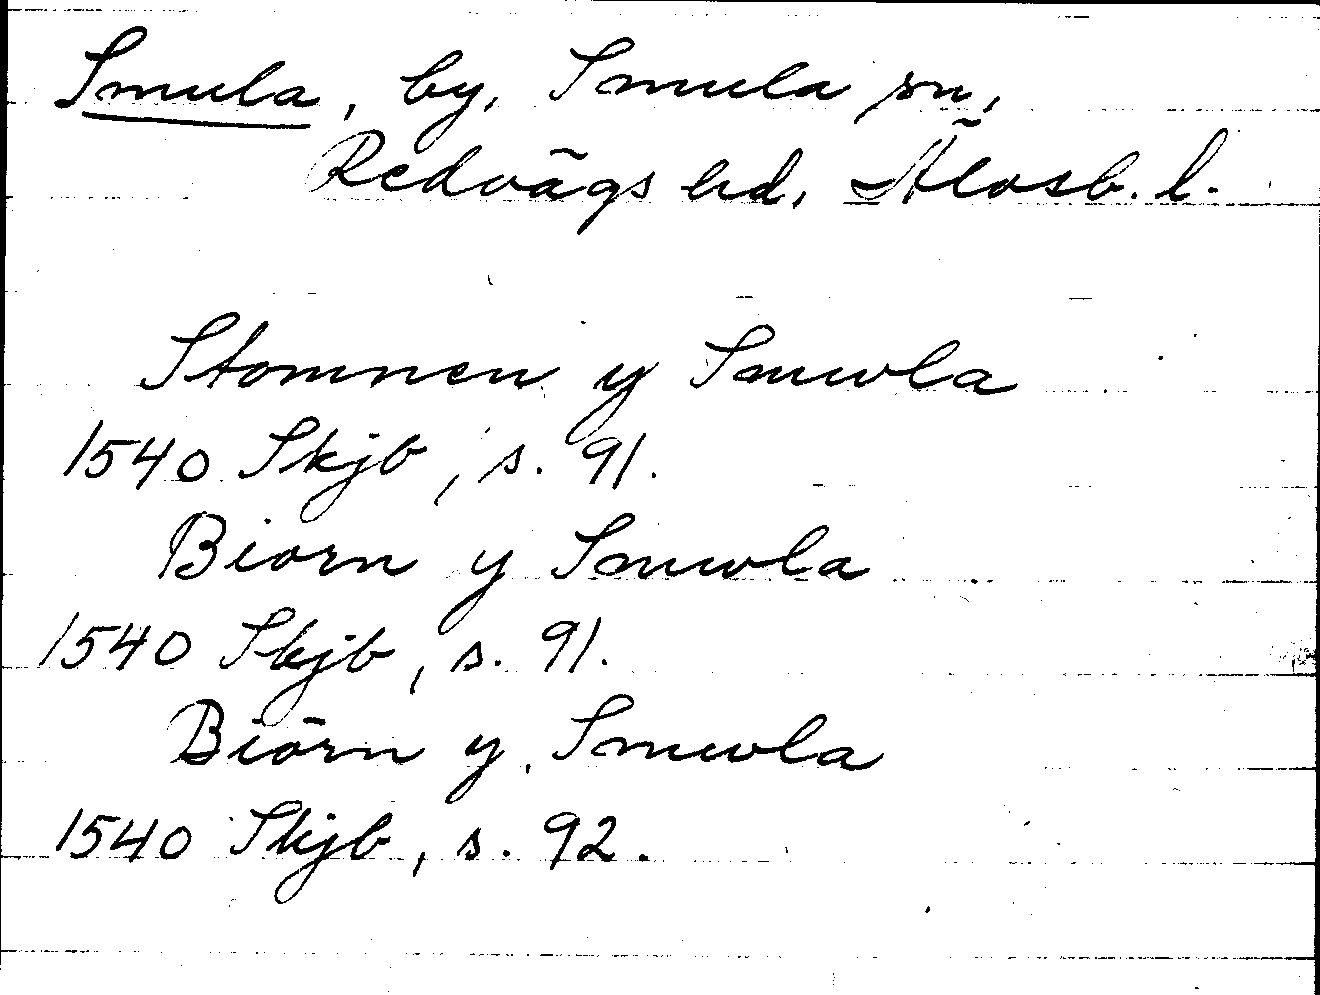 Smula, by, Smula sn,
Redvägs hd, Älvsb. l.
Stomnen y Smwla
1540 Skjb, s. 91.
Biorn y Smwla
1540 Skjb, s. 91.
Biörn y Smwla
1540 Skjb, s. 92.